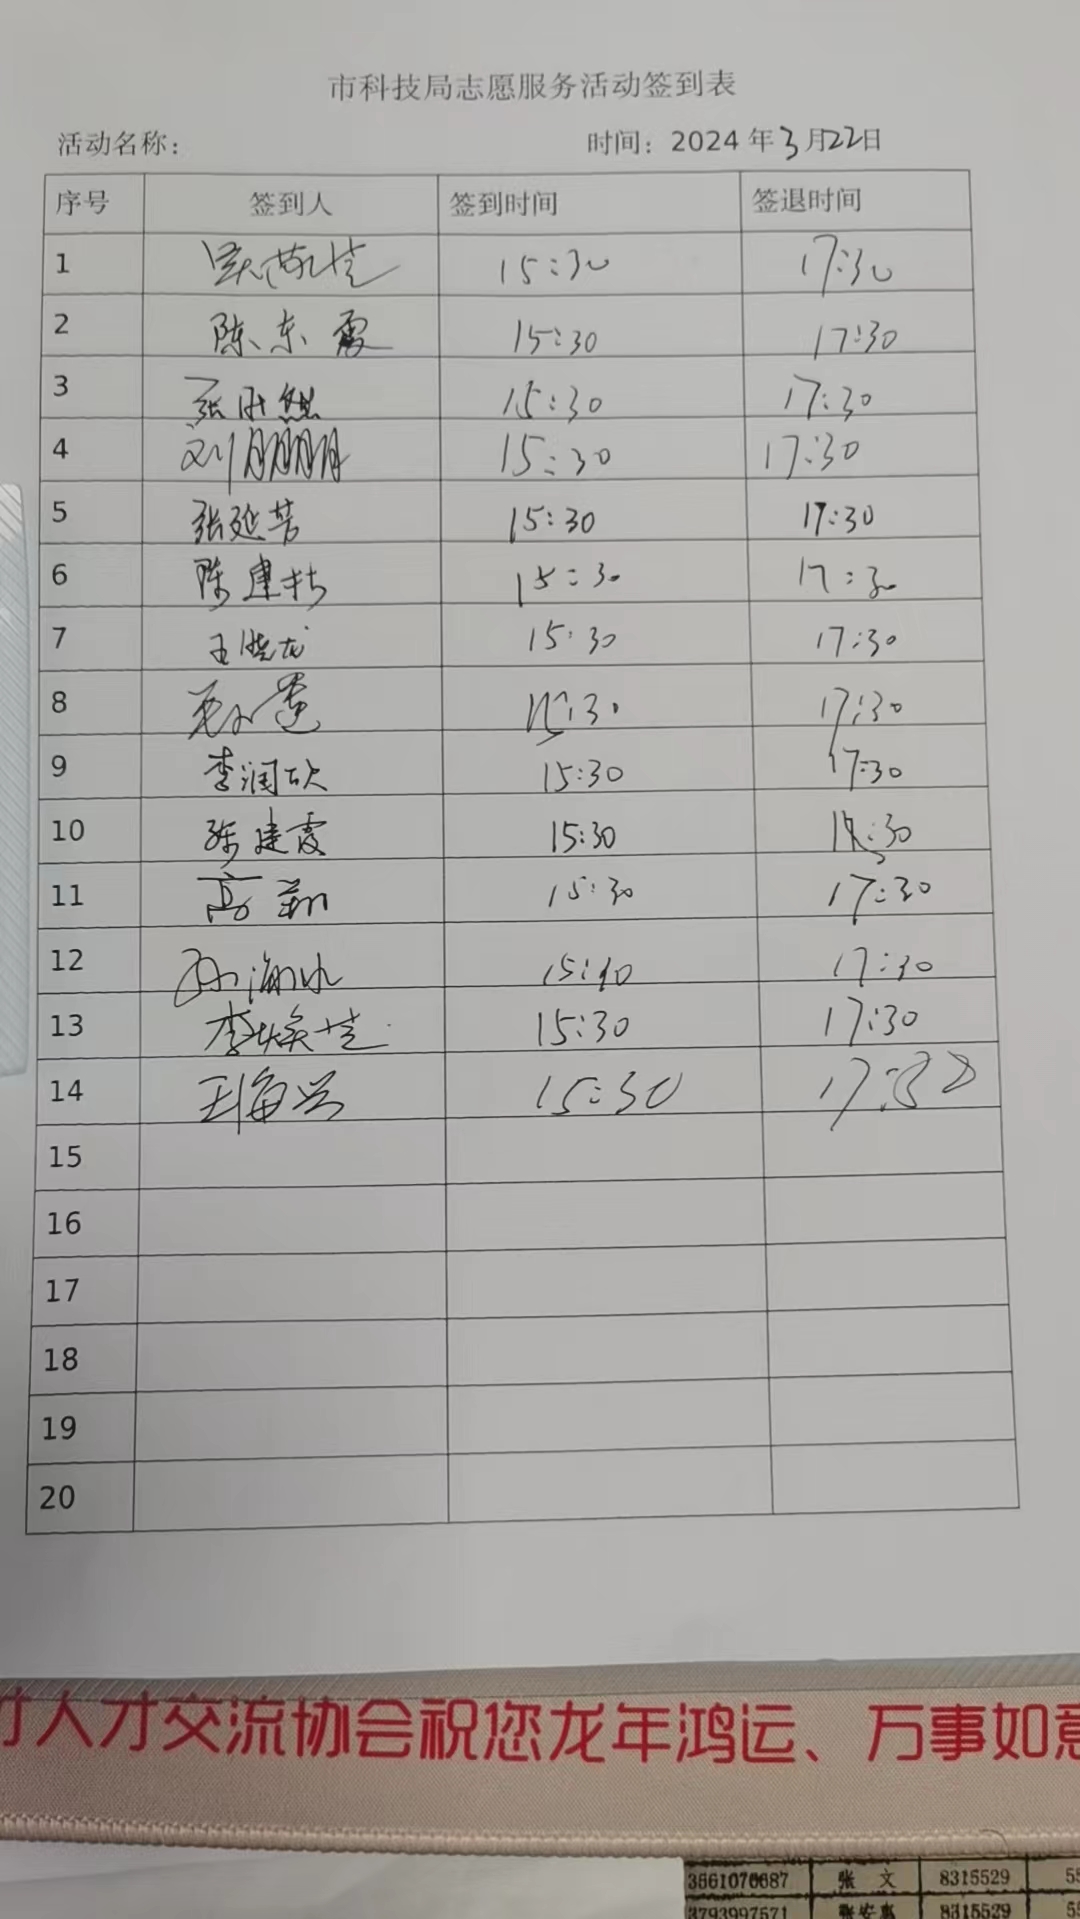 市科技局志愿服务活动签到表
活动名称： 时间：2024年3月22日
序号 签到人 签到时间 签退时间
1 15:30 17:30
2 陈东霞 15:30 17:30
3 15:30 17:30
4 刘鹏鹏 15:30 17:30
5 张延芳 15:30 17:30
6 陈建 15:30 17:30
7 王晓龙 15:30 17:30
8 15:30 17:30
9 李润欣 15:30 17:30
10 陈建霞 15:30 17:30
11 高翔 15:30 17:30
12 17:30
13 李焕芝 15:30 17:30
14 王海 15:30 17:30
15
16
17
18
19
20
人才交流协会祝您龙年鸿运、万事如意
3561070687 张文 8315529
3793997571 8315529